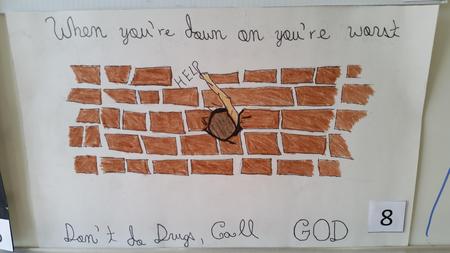 When you're down on you're worst
HELP
Don't do Drugs, Call GOD
8